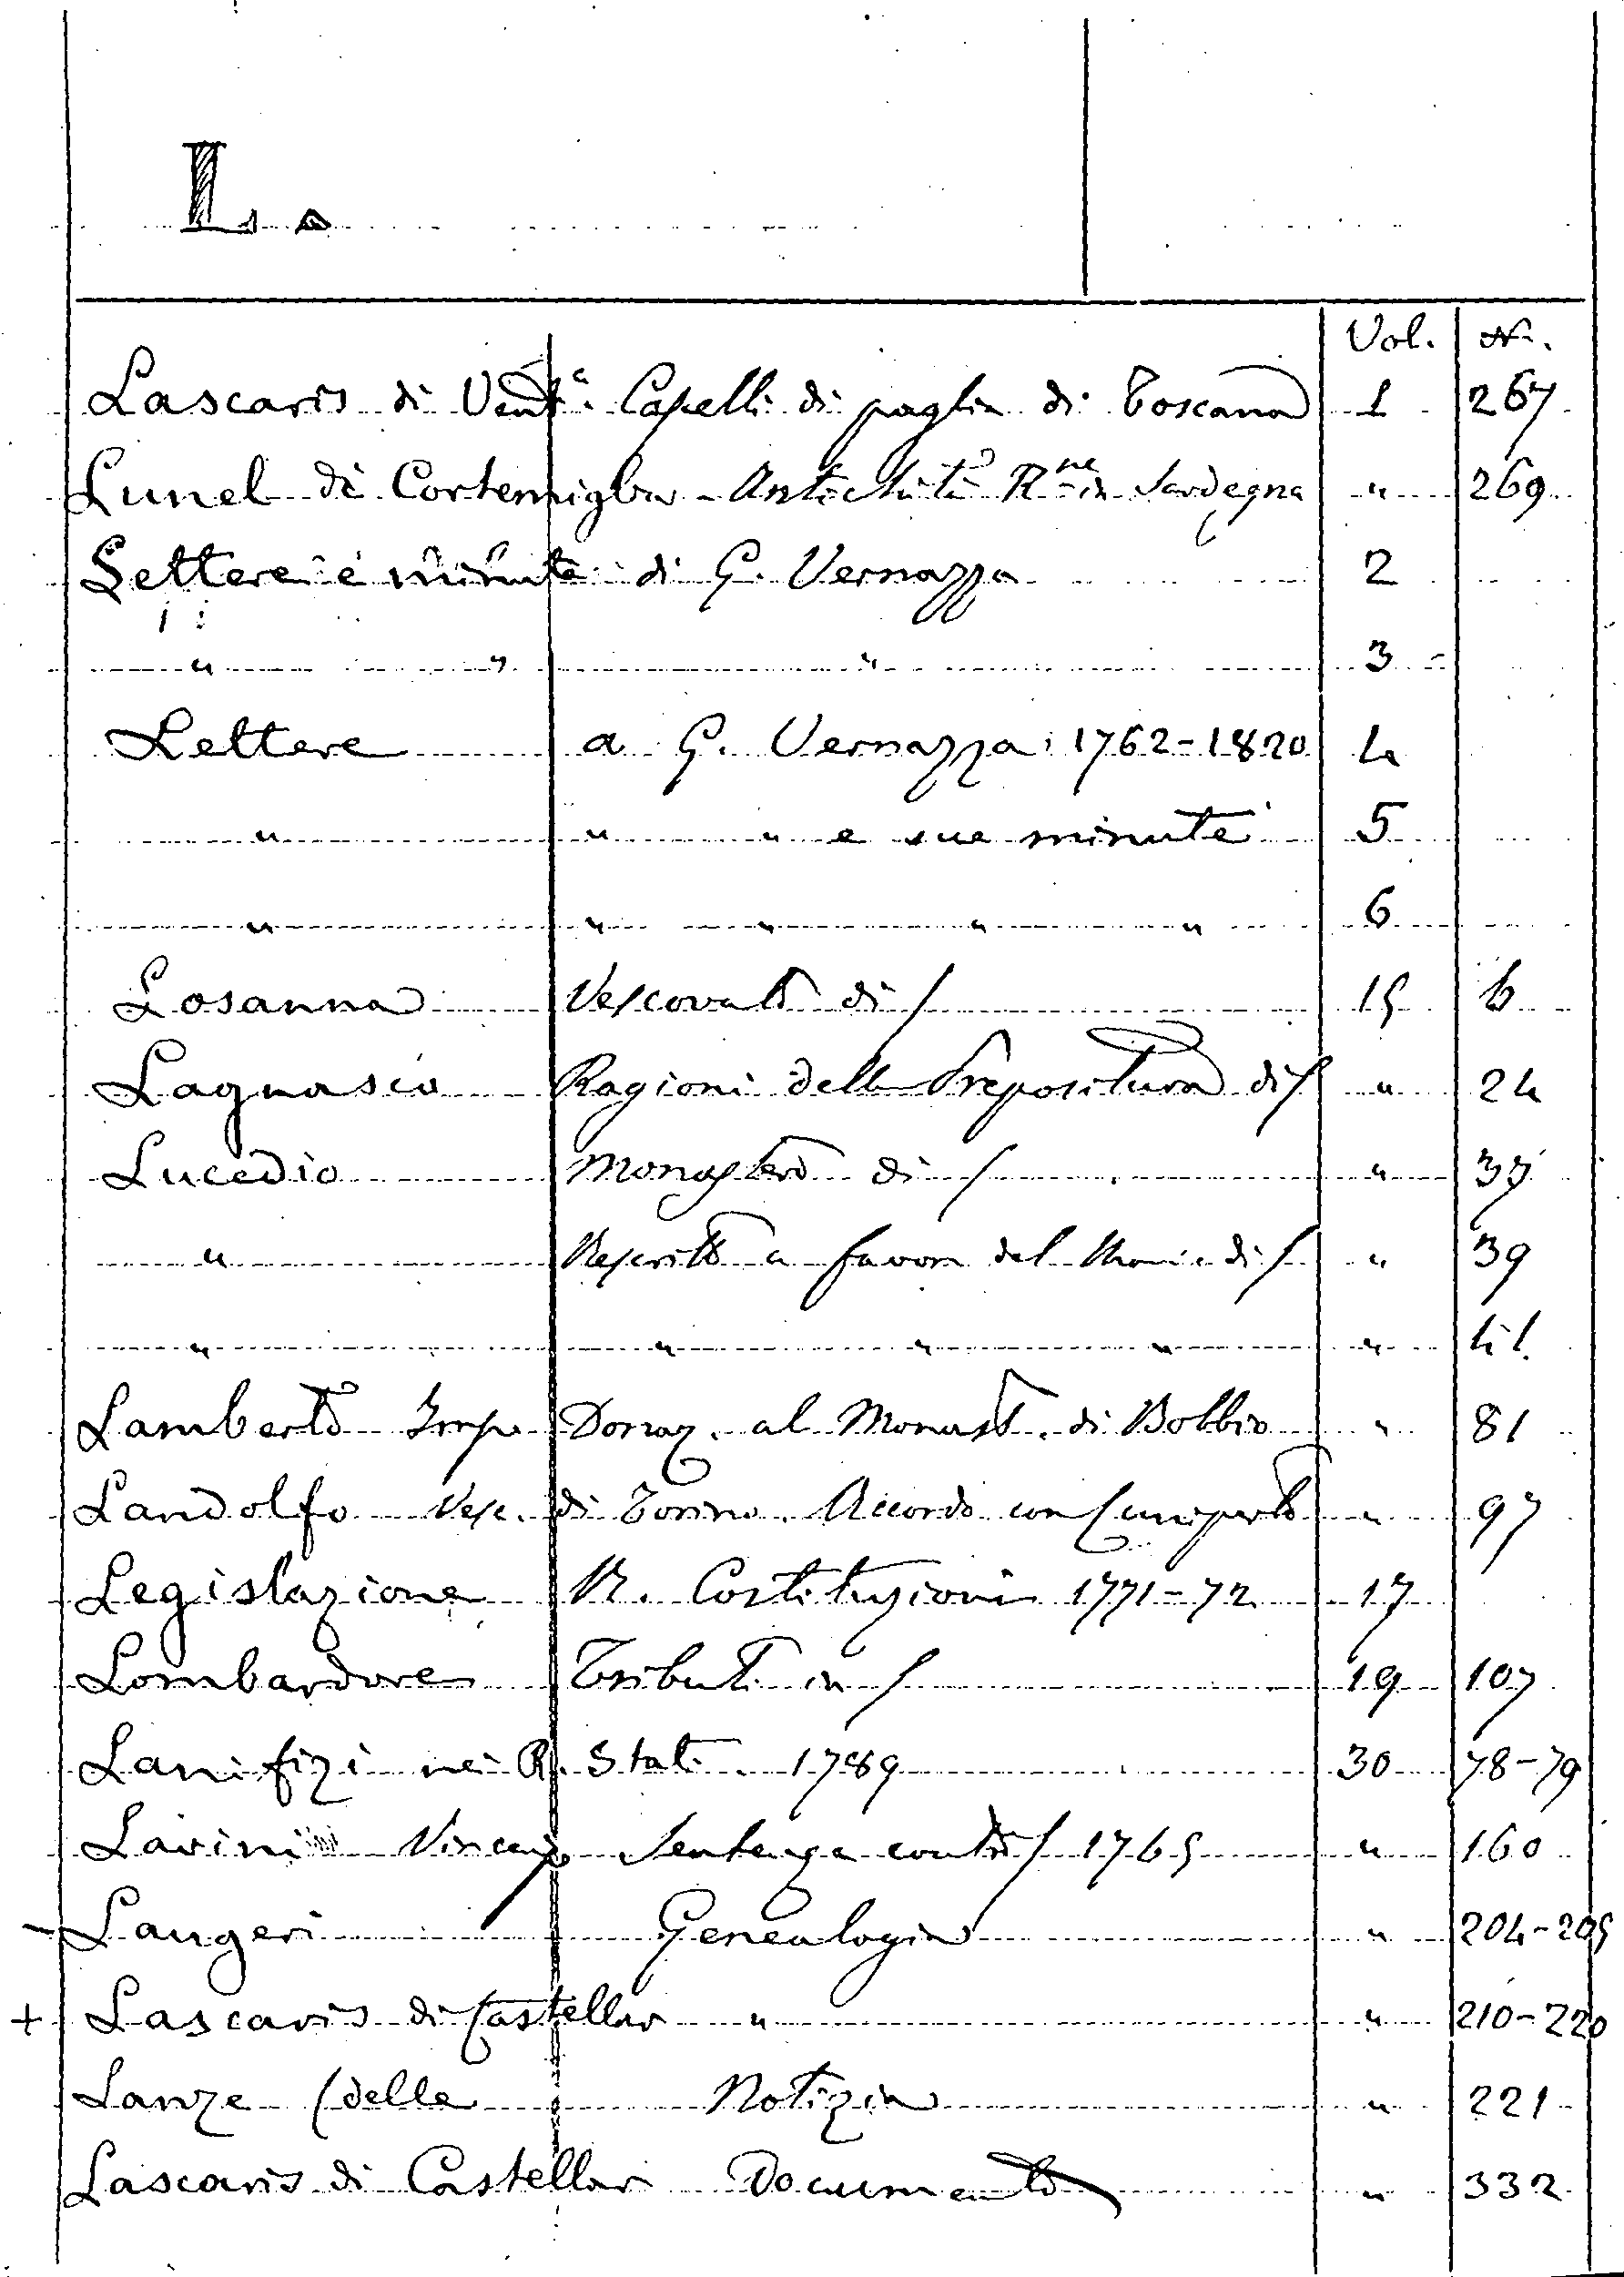 L.
Vol. N.
Lascaris di Vent.e Capelli di paglia di Toscana 1 267
Lunel di Cortemiglia - Antichità R.ne in Sardegna " 269
Lettere e minute di G. Vernazza 2
" " " 3
Lettere a G. Vernazza 1762-1820 4
" " " e sue minute 5
" " " " " 6
Losanna Vescovato di / 15 6
Lagnasco Ragioni della Prepositura di / " 24
Lucedio Monastero di / " 37
" Rescritto a favore del Mon. di / " 39
" " " " " 41
Lamberto Imp. Donaz. al Monast. di Bobbio " 81
Landolfo Vesc. di Torino. Accordo con Cuniperto " 97
Legislazione R. Costituzioni 1771-72 17
Lombardore Tributi in / 19 107
Lanifizi nei R. Stati. 1789 30 78-79
Lavini Vincenzo Sentenza contro / 1765 " 160
- Laugeri Genealogia " 204-205
+ Lascaris di Castellar " " 210-220
Lanze (delle Notizia " 221
Lascaris di Castellar Documento " 332